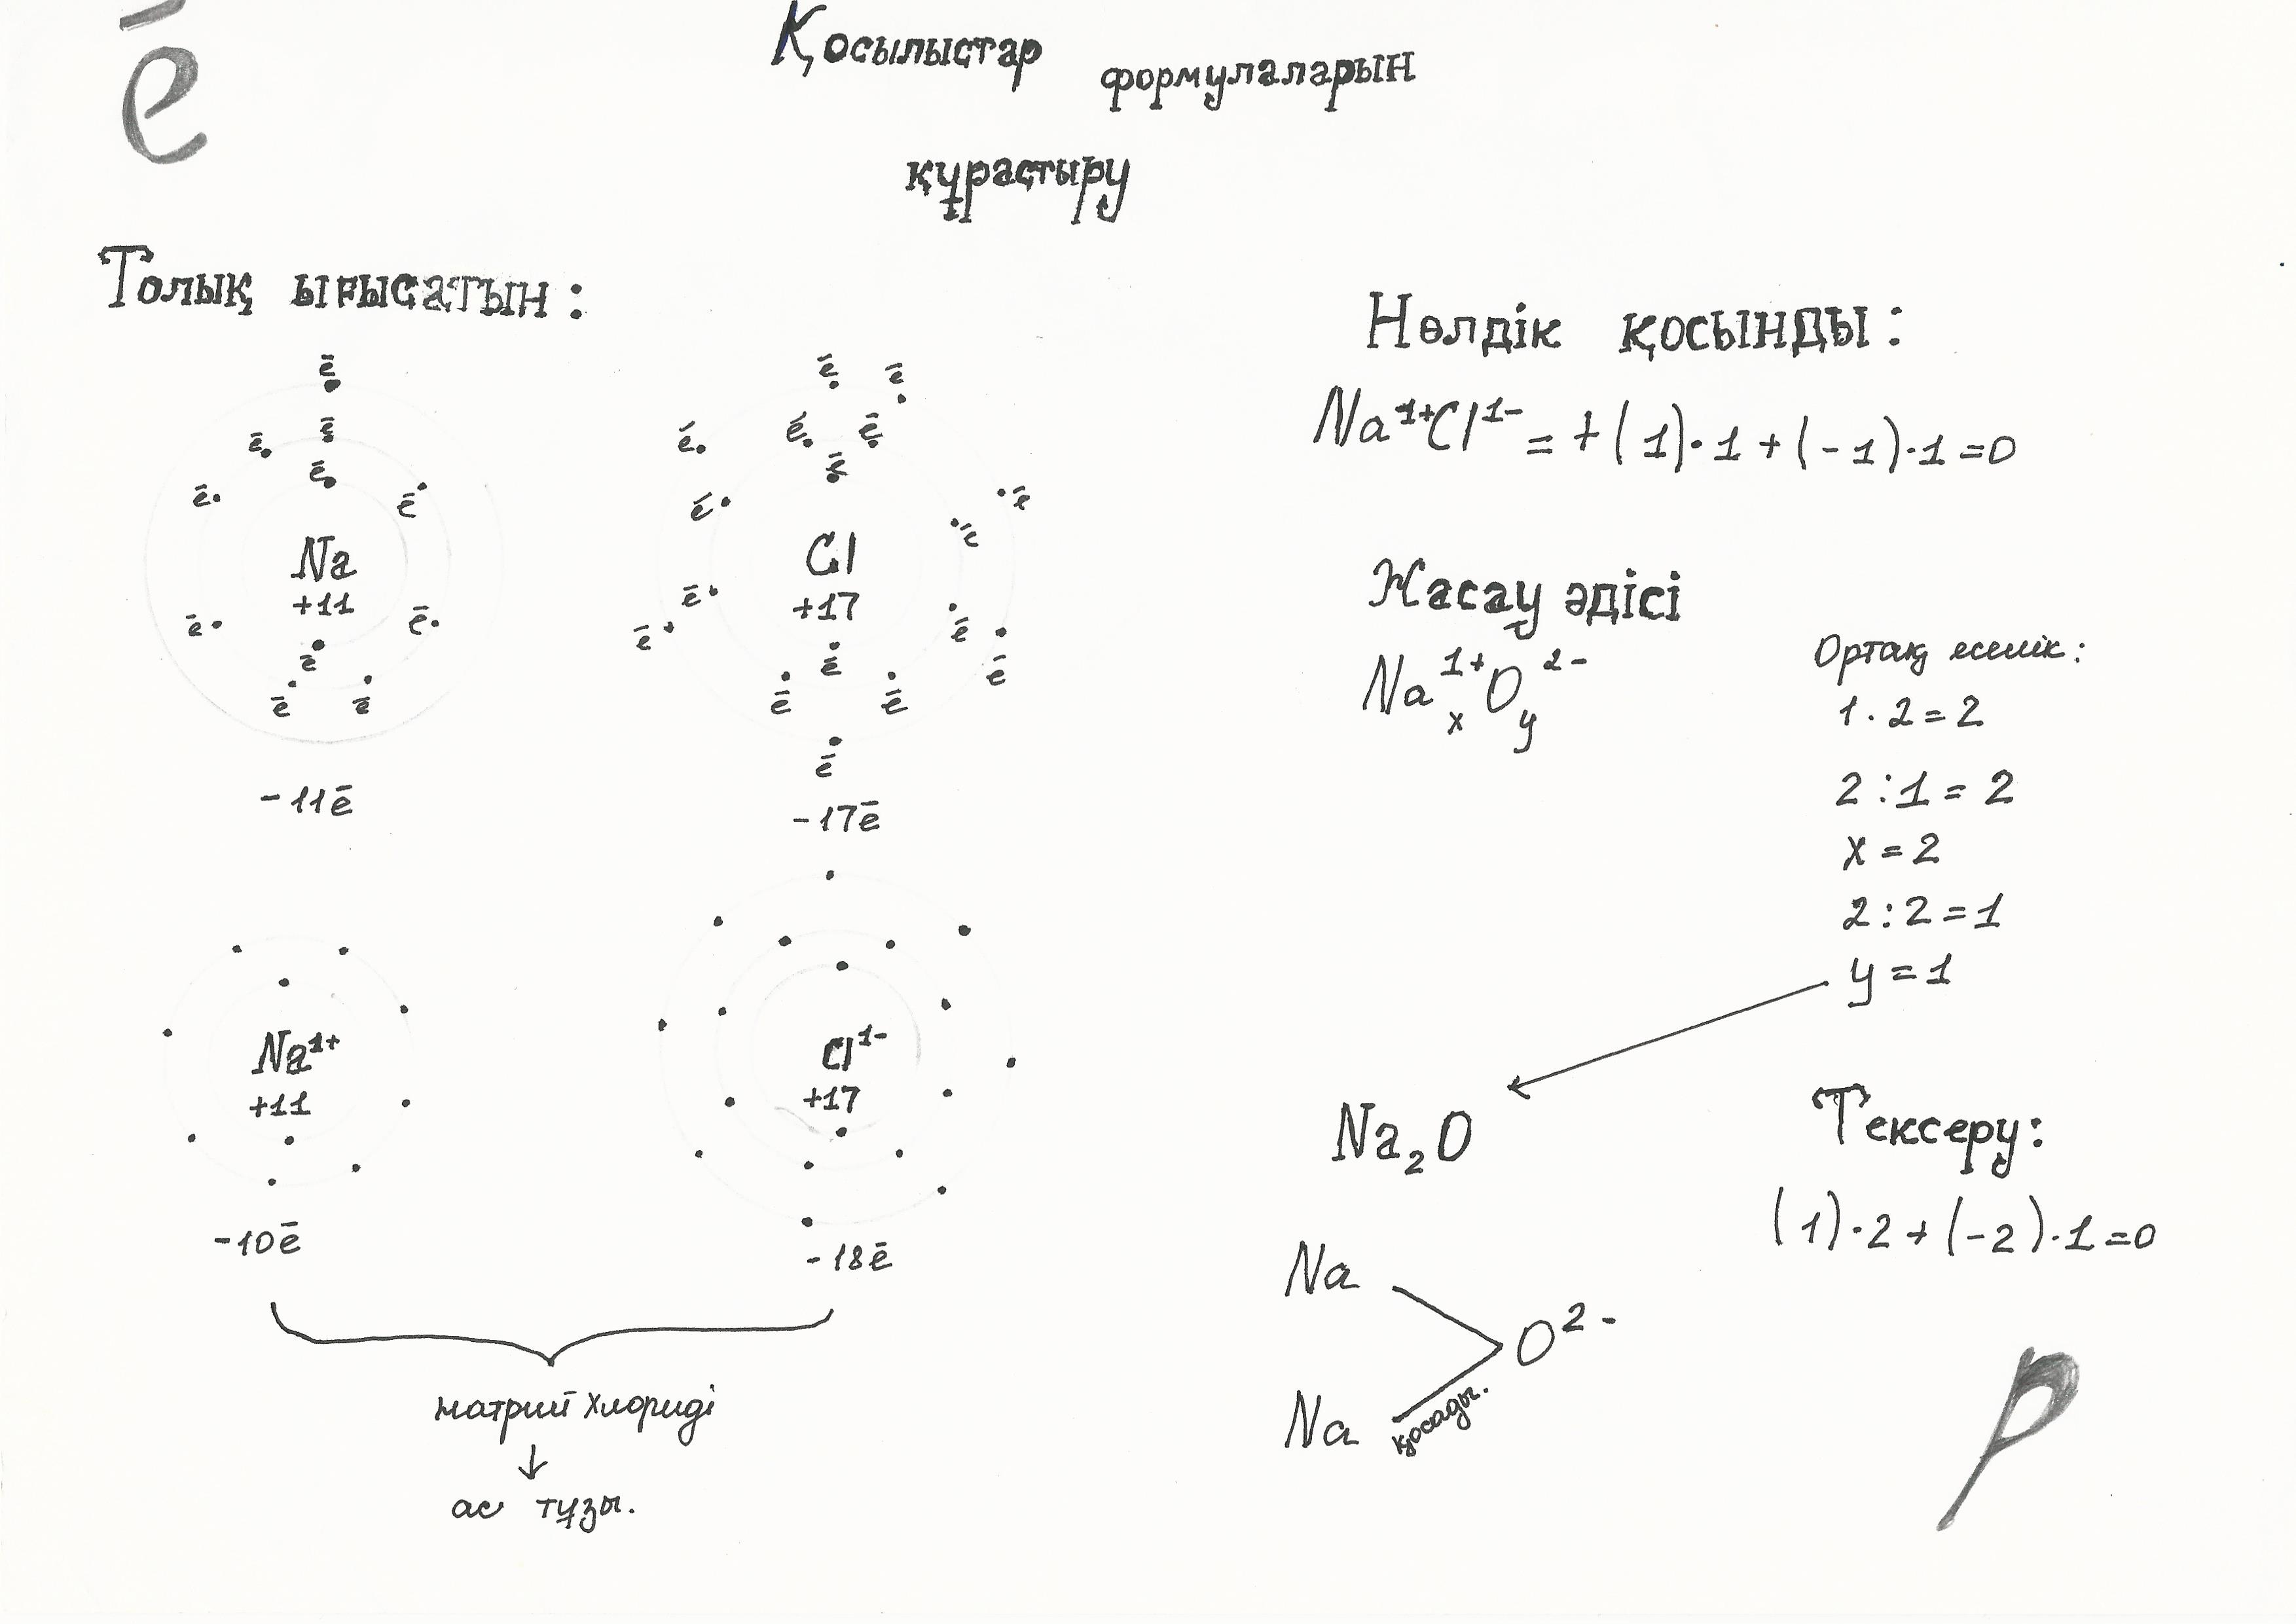 ē
Қосылыстар формулаларын
құрастыру
Толық ығысатын:
ē
ē
ē ē
ē ē
Na
+11
ē ē
ē
ē ē
-11ē
ē ē
ē ē ē
ē
ē ē
ē
Cl
+17
ē ē
ē ē
ē
ē ē
ē
-17ē
Na¹⁺
+11
-10ē
Cl¹⁻
+17
-18ē
натрий хлориді
↓
ас тұзы.
Нөлдік қосынды:
Na¹⁺Cl¹⁻ = +(1)·1+(-1)·1=0
Жасау әдісі
Naₓ¹⁺Oᵧ²⁻
Ортақ еселік:
1·2=2
2:1=2
x=2
2:2=1
y=1
Na₂O
Тексеру:
(1)·2+(-2)·1=0
Na
O²⁻
Na
қосады.
p